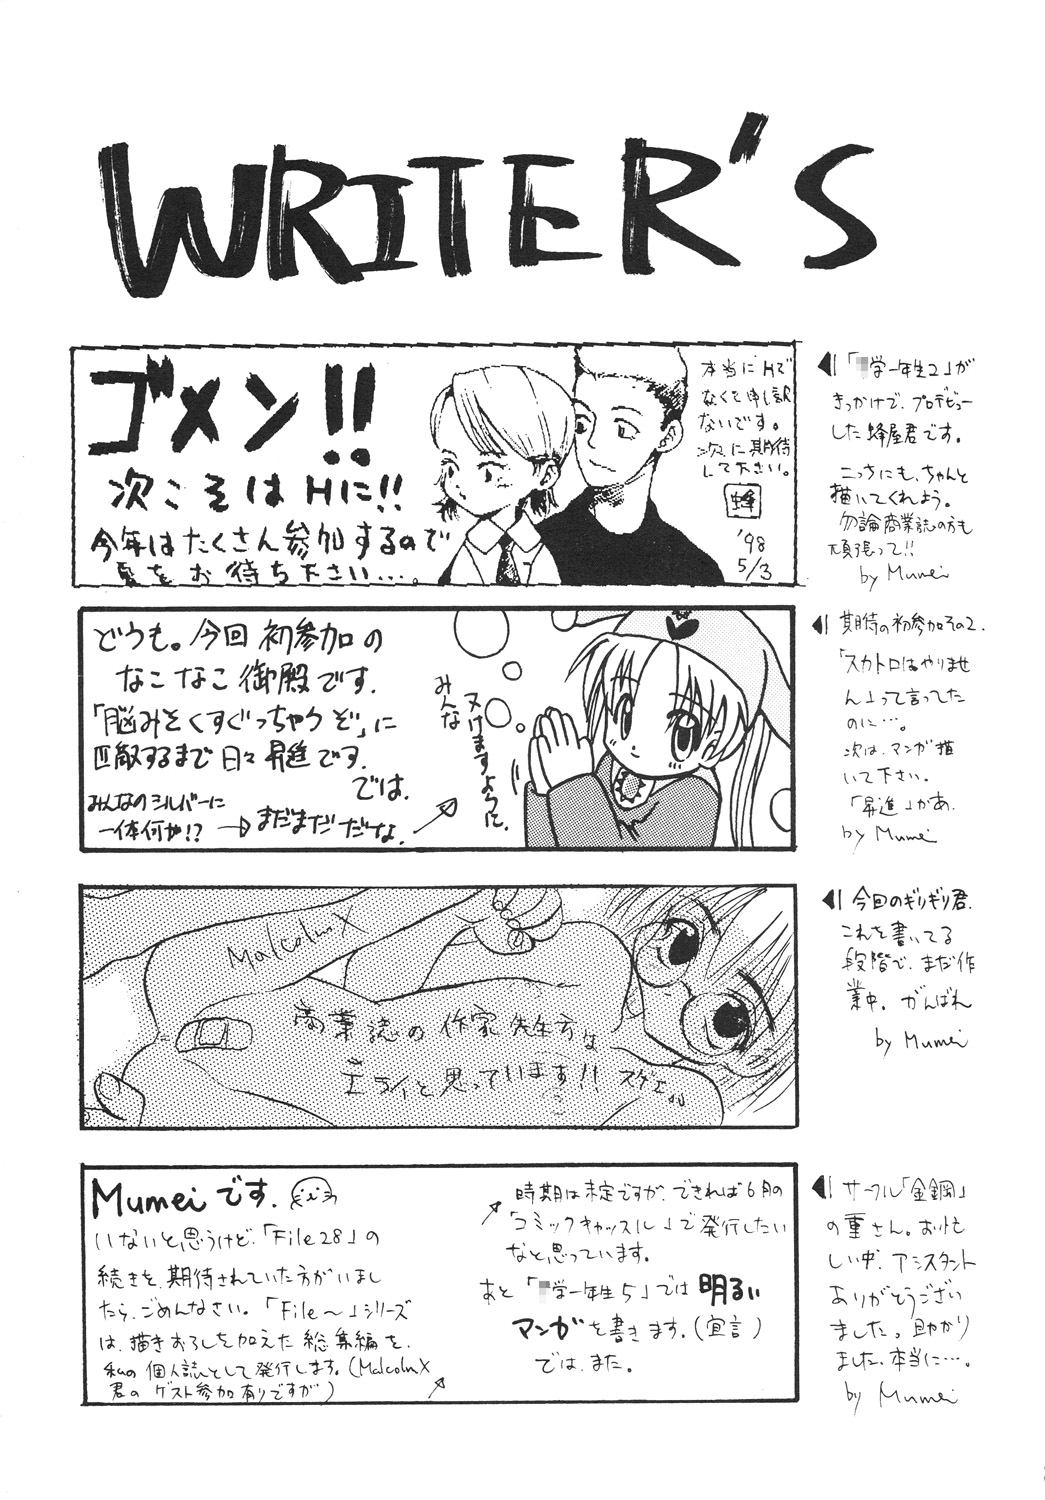 WRITER'S
ゴメン!!
次こそはHに!!
今年はたくさん参加するので
夏をお待ち下さい…。
本当にHで
なくて申し訳
ないです。
次に期待
して下さい。
蜂
'98
5/3
「学一年生2」が
きっかけで、プロデビュー
した蜂屋君です。
こっちにも、ちゃんと
描いてくれよう。
勿論商業誌の方も
頑張って!!
by Mumei
どうも。今回初参加の
なこなこ御殿です。
「脳みそくすぐっちゃうぞ」に
匹敵するまで日々昇進です。
では。
みんなのシルバーに
一体何が!?
まだまだだな。
みんな
ヌけますように。
期待の初参加その2.
「スカトロはやりませ
ん」って言ってた
のに…。
次は、マンガ描
いて下さい。
「昇進」かあ.
by Mumei
Malcolm X
商業誌の作家先生方は
エライと思っています!! スゲェ。
今回のギリギリ君.
これを書いてる
段階で、まだ作
業中。がんばれ
by Mumei
Mumeiです.
いないと思うけど、「File 28」の
続きを、期待されていた方がいまし
たら、ごめんなさい。「File〜」シリーズ
は、描きおろしを加えた総集編を、
私の個人誌として発行します。(Malcolm X
君のゲスト参加有りですが)
時期は未定ですが、できれば6月の
「コミックキャッスル」で発行したい
なと思っています。
あと「学一年生5」では明るい
マンガを書きます。(宣言)
では、また。
サークル「金鋼」
の重さん。お忙
しい中、アシスタント
ありがとうござい
ました。助かり
ました、本当に…。
by Mumei